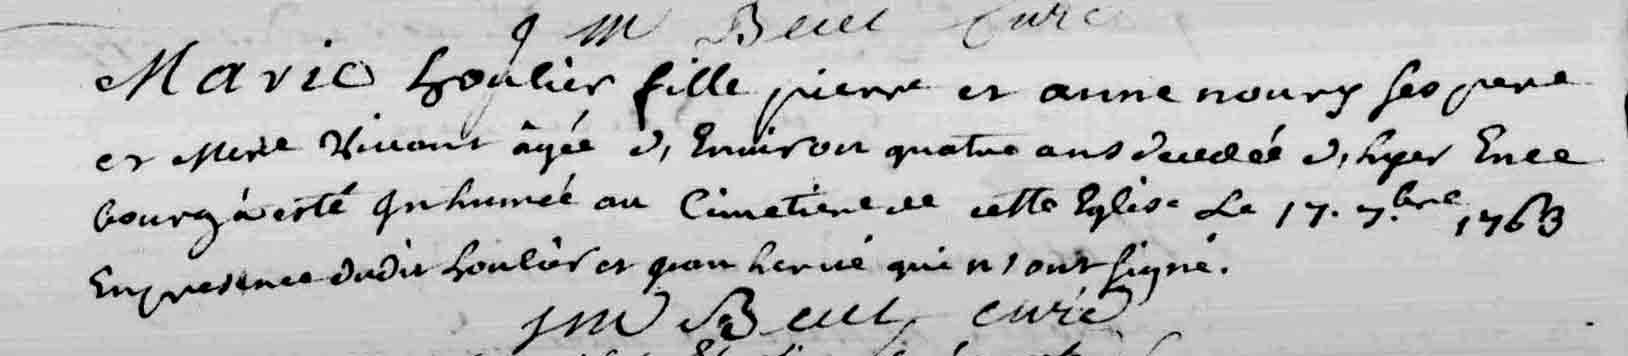 J M Beuet Curé
Marie houlier fille pierre et anne noury ses pere
et Mere Vivant âgée d, Environ quatre ans decedéé d, hyer Ence
bourg à esté Inhumée au Cimetiere de cette Eglise Le 17. 7.bre 1763
En presence dudit houlier et jean hervé qui n, ont signé.
JM Beuet, curé